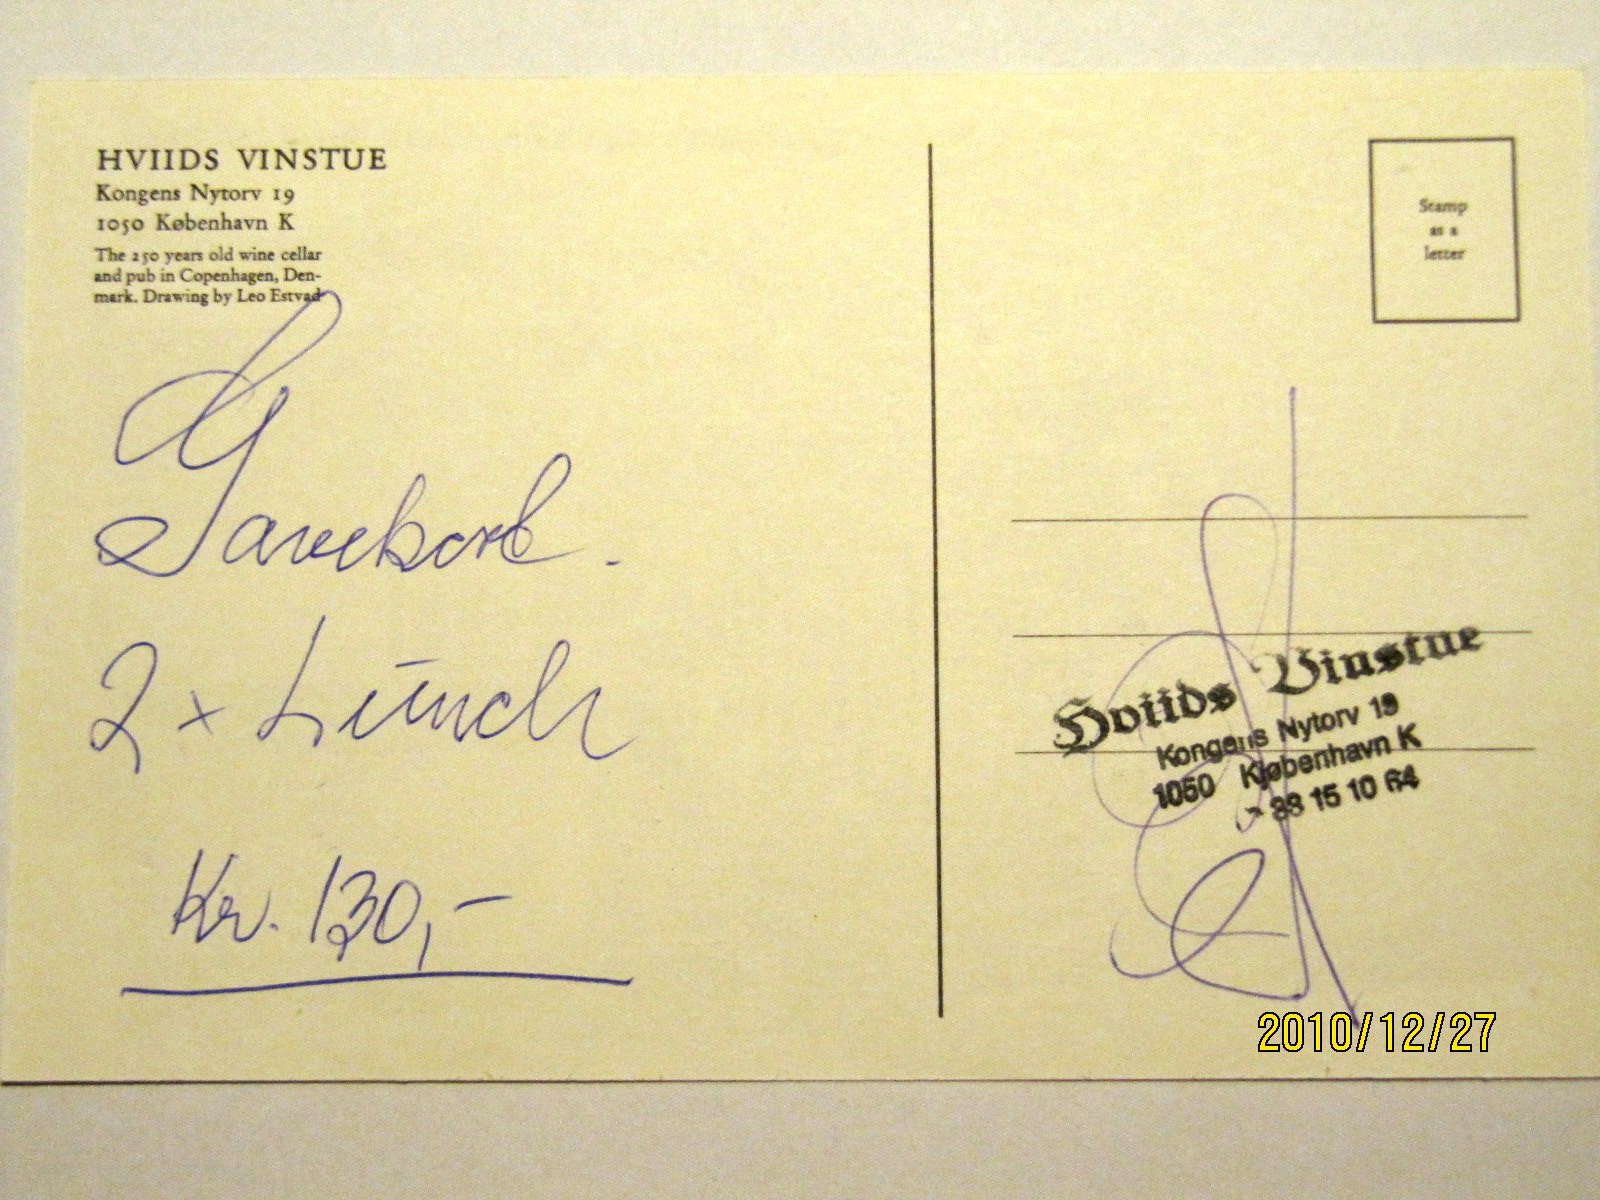 HVIIDS VINSTUE
Kongens Nytorv 19
1050 København K
The 250 years old wine cellar
and pub in Copenhagen, Den-
mark. Drawing by Leo Estvad
Gavekort.
2 x Lunch
Kr. 130,-
Stamp
as a
letter
Hviids Vinstue
Kongens Nytorv 19
1050 Kjøbenhavn K
33 15 10 64
2010/12/27